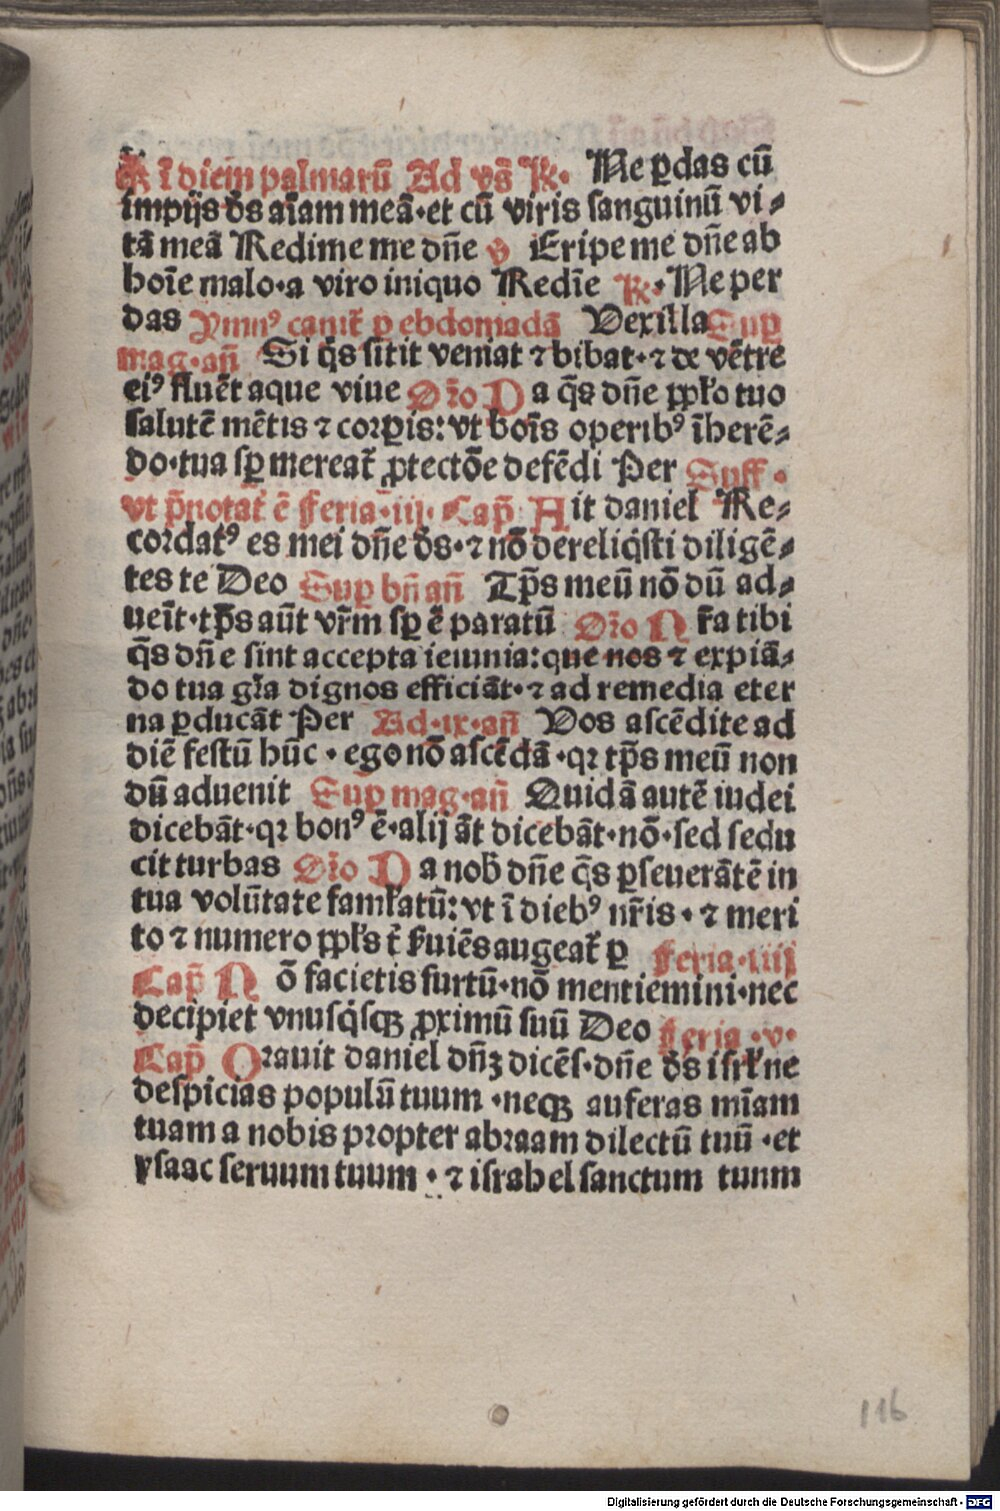 ī diem palmarū Ad vs̄ ℟. Ne ꝑdas cū
impijs ds̄ aīam meā·et cū viris sanguinū vi⸗
tā meā Redime me dn̄e ℣ Eripe me dn̄e ab
hoīe malo·a viro iniquo Redīe ℟· Ne per
das Ymnꝰ canit̄ ꝑ ebdomadā Vexilla Suꝑ
mag·an̄ Si q̄s sitit veniat ⁊ bibat·⁊ de vētre
eiꝰ fluēt aque viue Or̄o Da q̄s dn̄e ppl̄o tuo
salutē mētis ⁊ corꝑis: vt boīs operibꝰ īherē⸗
do·tua sꝑ mereat̄ ꝓtectōe defēdi Per Suff·
vt p̄notat̄ ē Feria·iij· Cap̄ Ait daniel Re⸗
cordatꝰ es mei dn̄e ds̄·⁊ nō dereliq̇sti diligē⸗
tes te Deo Suꝑ bn̄ an̄ Tp̄s meū nō dū ad⸗
ueīt·tp̄s aūt vr̄m sꝑ ē paratū Or̄o Nr̄a tibi
q̄s dn̄e sint accepta ieiunia: que nos ⁊ expiā⸗
do tua gr̄a dignos efficiāt·⁊ ad remedia eter
na ꝑducāt Per Ad·ix·an̄ Vos ascēdite ad
diē festū hūc·ego nō ascēdā·qꝛ tp̄s meū non
dū aduenit Suꝑ mag·an̄ Quidā autē iudei
dicebāt·qꝛ bonꝰ ē·alij āt dicebāt·nō·sed sedu
cit turbas Or̄o Da nob̄ dn̄e q̄s ꝑseuerātē in
tua volūtate faml̄atū: vt ī diebꝰ nr̄is·⁊ meri
to ⁊ numero ppl̄s t̄ s̄uiēs augeat̄ ꝑ Feria·iiij
Cap̄ Nō facietis furtū·nō mentiemini·nec
decipiet vnusq̇sqꝫ ꝓximū suū Deo Feria·v·
Cap̄ Orauit daniel dn̄ꝫ dicēs·dn̄e ds̄ isrl̄ ne
despicias populū tuum·neqꝫ auferas mīam
tuam a nobis propter abraam dilectū tuū·et
ysaac seruum tuum·⁊ israhel sanctum tuum
116
Digitalisierung gefördert durch die Deutsche Forschungsgemeinschaft - DFG